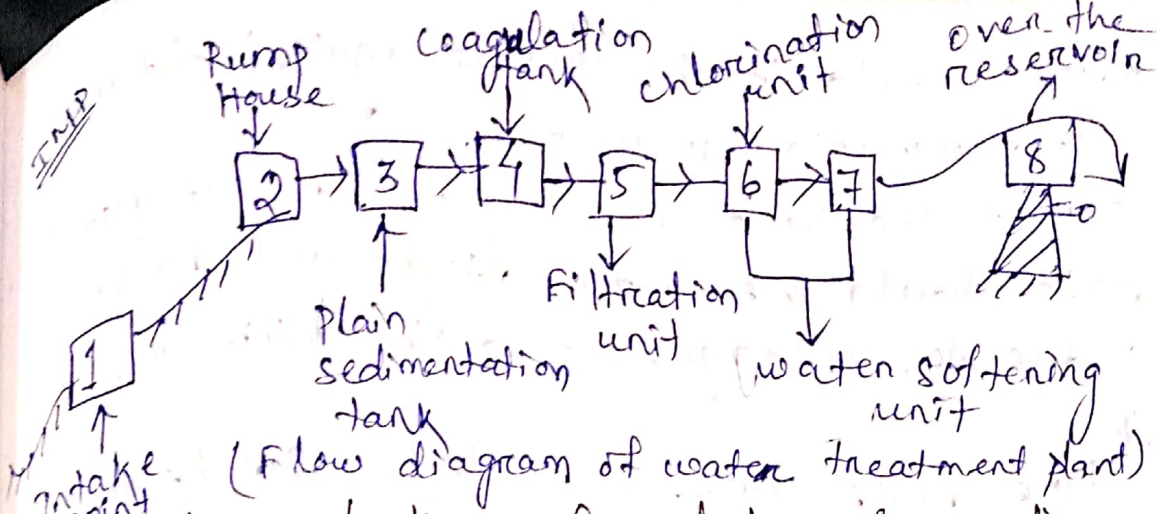 IMP
Pump
House
Coagulation
tank
chlorination
unit
over the
reservoir
1
2
3
4
5
6
7
8
Intake
point
plain
sedimentation
tank
Filtration
unit
water softening
unit
(Flow diagram of water treatment plant)